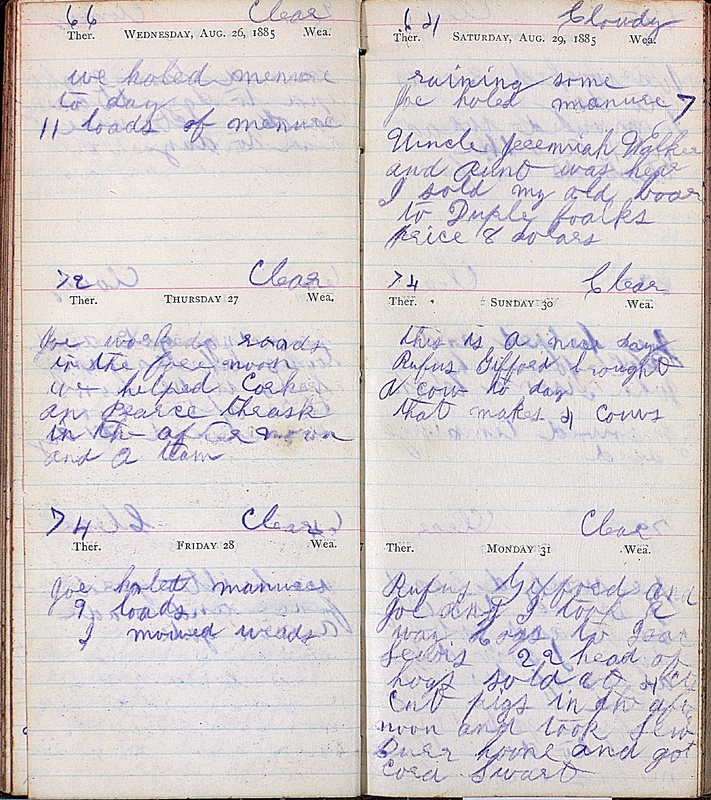 66 Clear
Ther. WEDNESDAY, AUG. 26, 1885 Wea.
we holed menure
to day
11 loads of menure
72 Clear
Ther. THURSDAY 27 Wea.
Joe worked roads
in the foe noon
we helped Cork
an Pearce thrask
in th afternown
and a team
74 Clear
Ther. FRIDAY 28 Wea.
Joe holed manure
9 loads
I mowed weads
64 Cloudy
Ther. SATURDAY, AUG. 29, 1885 Wea.
raining some
Joe holed manure 7
Uncle Jeremiah Walker
and Aunt was hear
I sold my old boar
to Duple foarks
price 8 dolars
74 Clear
Ther. SUNDAY 30 Wea.
this is a nice day
Rufus Gifford brought
a cow to day
that makes 4 couws
Clear
Ther. MONDAY 31 Wea.
Rufus Gifford and
Joe and I took a
way hogs to Isac
Sears 22 head of
hogs sold at 4
Cut pigs in th aft
noon and took
Burr home and got
Cord Swart